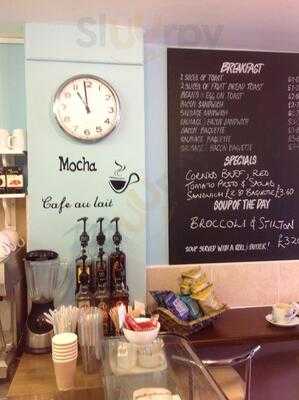 BREAKFAST
2 SLICES OF TOAST
2 SLICES OF FRUIT BREAD TOAST
BEANS / EGG ON TOAST
BACON SANDWICH
SAUSAGE SANDWICH
SAUSAGE / BACON SANDWICH
BACON BAGUETTE
SAUSAGE BAGUETTE
SAUSAGE / BACON BAGUETTE
SPECIALS
CORNED BEEF, RED
TOMATO PESTO & SALAD
SANDWICH £2.8 BAGUETTE £3.60
SOUP OF THE DAY
BROCCOLI & STILTON
£3.20
SOUP SERVED WITH A ROLL & BUTTER!
Mocha
Cafe au lait